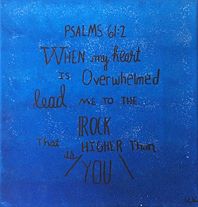 PSALMS 61:2
WHEN my heart
IS Overwhelmed
lead ME TO THE
ROCK
That is HIGHER Than
YOU